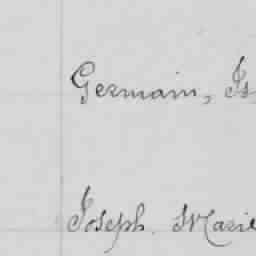 Germain, Is
Joseph. Marie